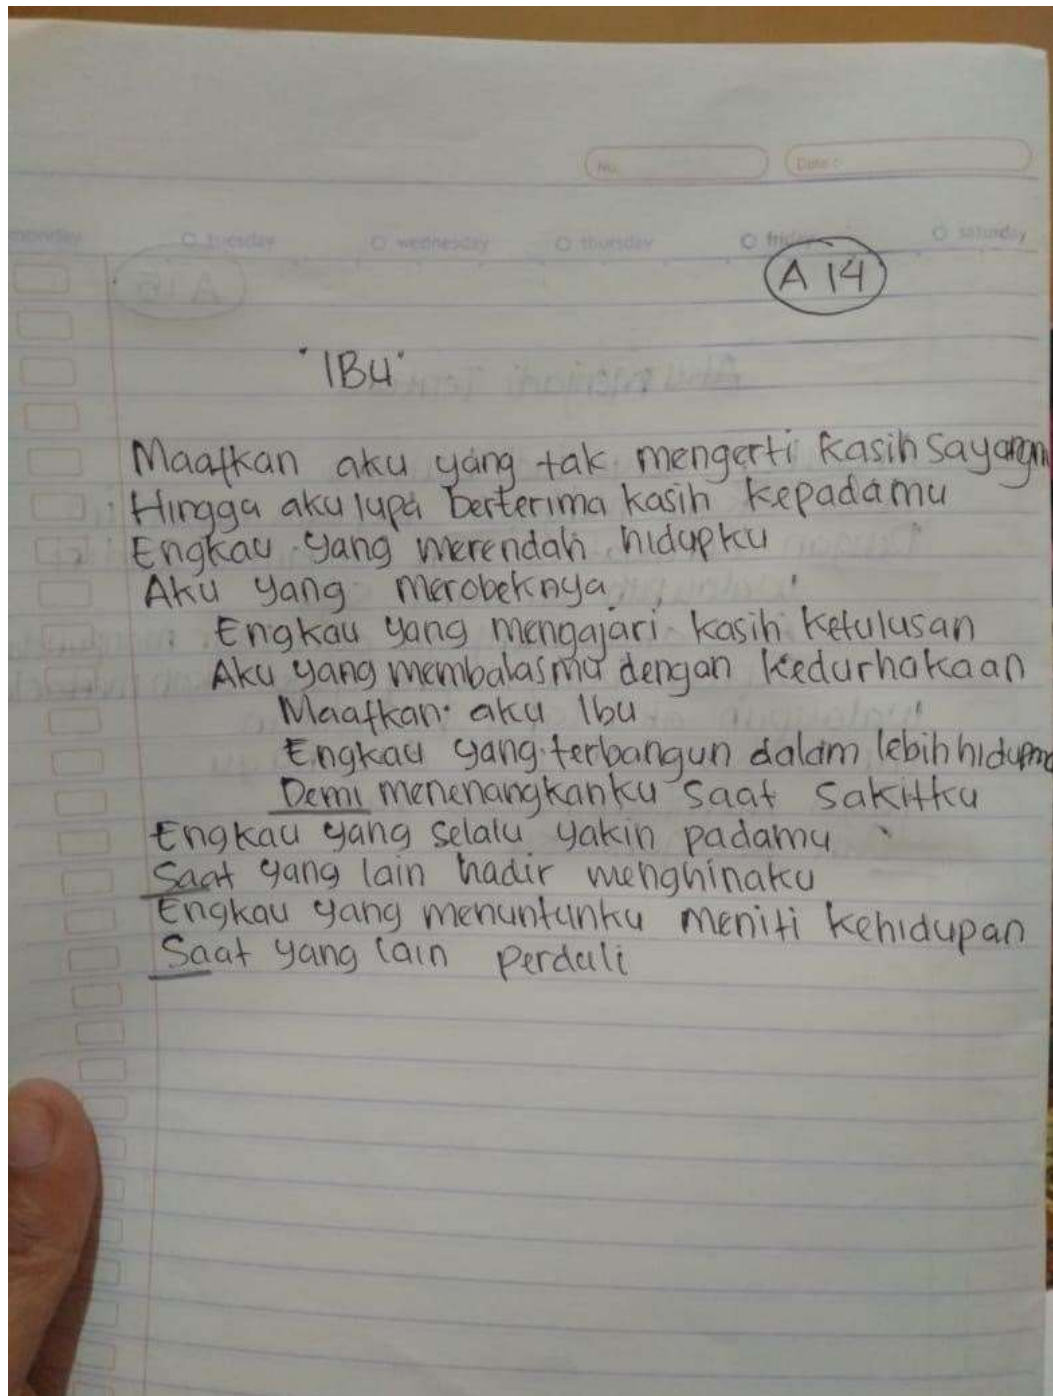 No.
Date :
monday tuesday wednesday thursday friday saturday
A 14
"IBU"
Maafkan aku yang tak mengerti kasih sayangm
Hingga aku lupa berterima kasih kepadamu
Engkau yang merendah hidupku
Aku yang merobeknya
Engkau yang mengajari kasih ketulusan
Aku yang membalasmu dengan kedurhakaan
Maafkan aku Ibu
Engkau yang terbangun dalam lebih hidupmu
Demi menenangkanku saat sakitku
Engkau yang selalu yakin padamu
Saat yang lain hadir menghinaku
Engkau yang menuntunku meniti kehidupan
Saat yang lain perduli